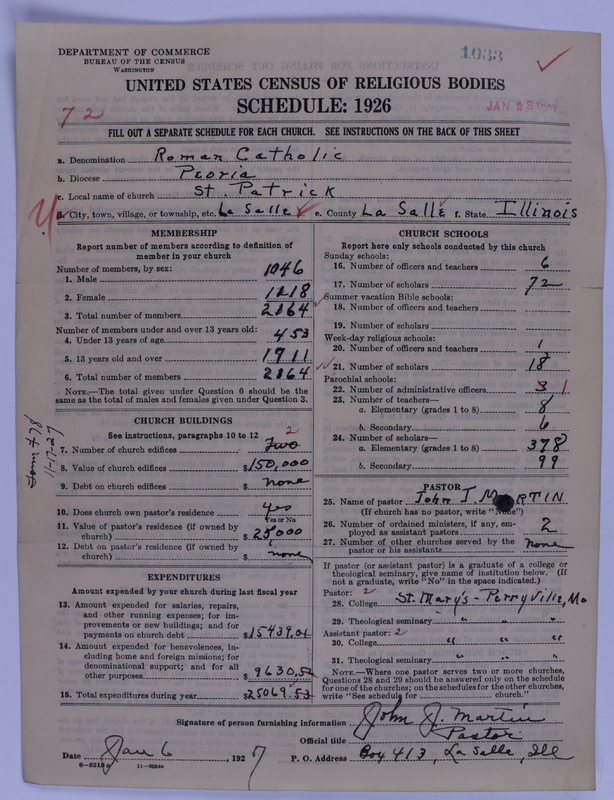 DEPARTMENT OF COMMERCE
BUREAU OF THE CENSUS
WASHINGTON
1033
UNITED STATES CENSUS OF RELIGIOUS BODIES
SCHEDULE: 1926
72
JAN 28 1927
FILL OUT A SEPARATE SCHEDULE FOR EACH CHURCH. SEE INSTRUCTIONS ON THE BACK OF THIS SHEET
a. Denomination Roman Catholic
b. Diocese Peoria
c. Local name of church St. Patrick
d. City, town, village, or township, etc. La Salle e. County La Salle f. State Illinois
MEMBERSHIP
Report number of members according to definition of member in your church
Number of members, by sex:
1. Male 1046
2. Female 1118
3. Total number of members 2164
Number of members under and over 13 years old:
4. Under 13 years of age 453
5. 13 years old and over 1711
6. Total number of members 2164
NOTE.—The total given under Question 6 should be the
same as the total of males and females given under Question 3.
CHURCH BUILDINGS
See instructions, paragraphs 10 to 12
7. Number of church edifices Two 2
8. Value of church edifices $150,000
9. Debt on church edifices $ none
10. Does church own pastor's residence? yes
Yes or No
11. Value of pastor's residence (if owned by
church) $25000
12. Debt on pastor's residence (if owned by
church) $ none
Form 478
11-17-27
EXPENDITURES
Amount expended by your church during last fiscal year
13. Amount expended for salaries, repairs,
and other running expenses; for im-
provements or new buildings; and for
payments on church debt $15439.01
14. Amount expended for benevolences, in-
cluding home and foreign missions; for
denominational support; and for all
other purposes $9630.52
15. Total expenditures during year $25069.53
CHURCH SCHOOLS
Report here only schools conducted by this church
Sunday schools:
16. Number of officers and teachers 6
17. Number of scholars 72
Summer vacation Bible schools:
18. Number of officers and teachers
19. Number of scholars
Week-day religious schools:
20. Number of officers and teachers 1
21. Number of scholars 18
Parochial schools:
22. Number of administrative officers 3 1
23. Number of teachers—
a. Elementary (grades 1 to 8) 8
b. Secondary 6
24. Number of scholars—
a. Elementary (grades 1 to 8) 378
b. Secondary 99
PASTOR
25. Name of pastor John J. MARTIN
(If church has no pastor, write "None")
26. Number of ordained ministers, if any, em-
ployed as assistant pastors 2
27. Number of other churches served by the
pastor or his assistants none
If pastor (or assistant pastor) is a graduate of a college or
theological seminary, give name of institution below. (If
not a graduate, write "No" in the space indicated.)
Pastor: 2
28. College St. Mary's - Perryville, Mo
29. Theological seminary " " "
Assistant pastor: 2
30. College " " "
31. Theological seminary " " "
NOTE.—Where one pastor serves two or more churches,
Questions 28 and 29 should be answered only on the schedule
for one of the churches; on the schedules for the other churches,
write "See schedule for church."
Signature of person furnishing information John J. Martin
Official title Pastor
Date Jan 6, 1927 P. O. Address Box 413, La Salle, Ill
8-5518a 11-9654a